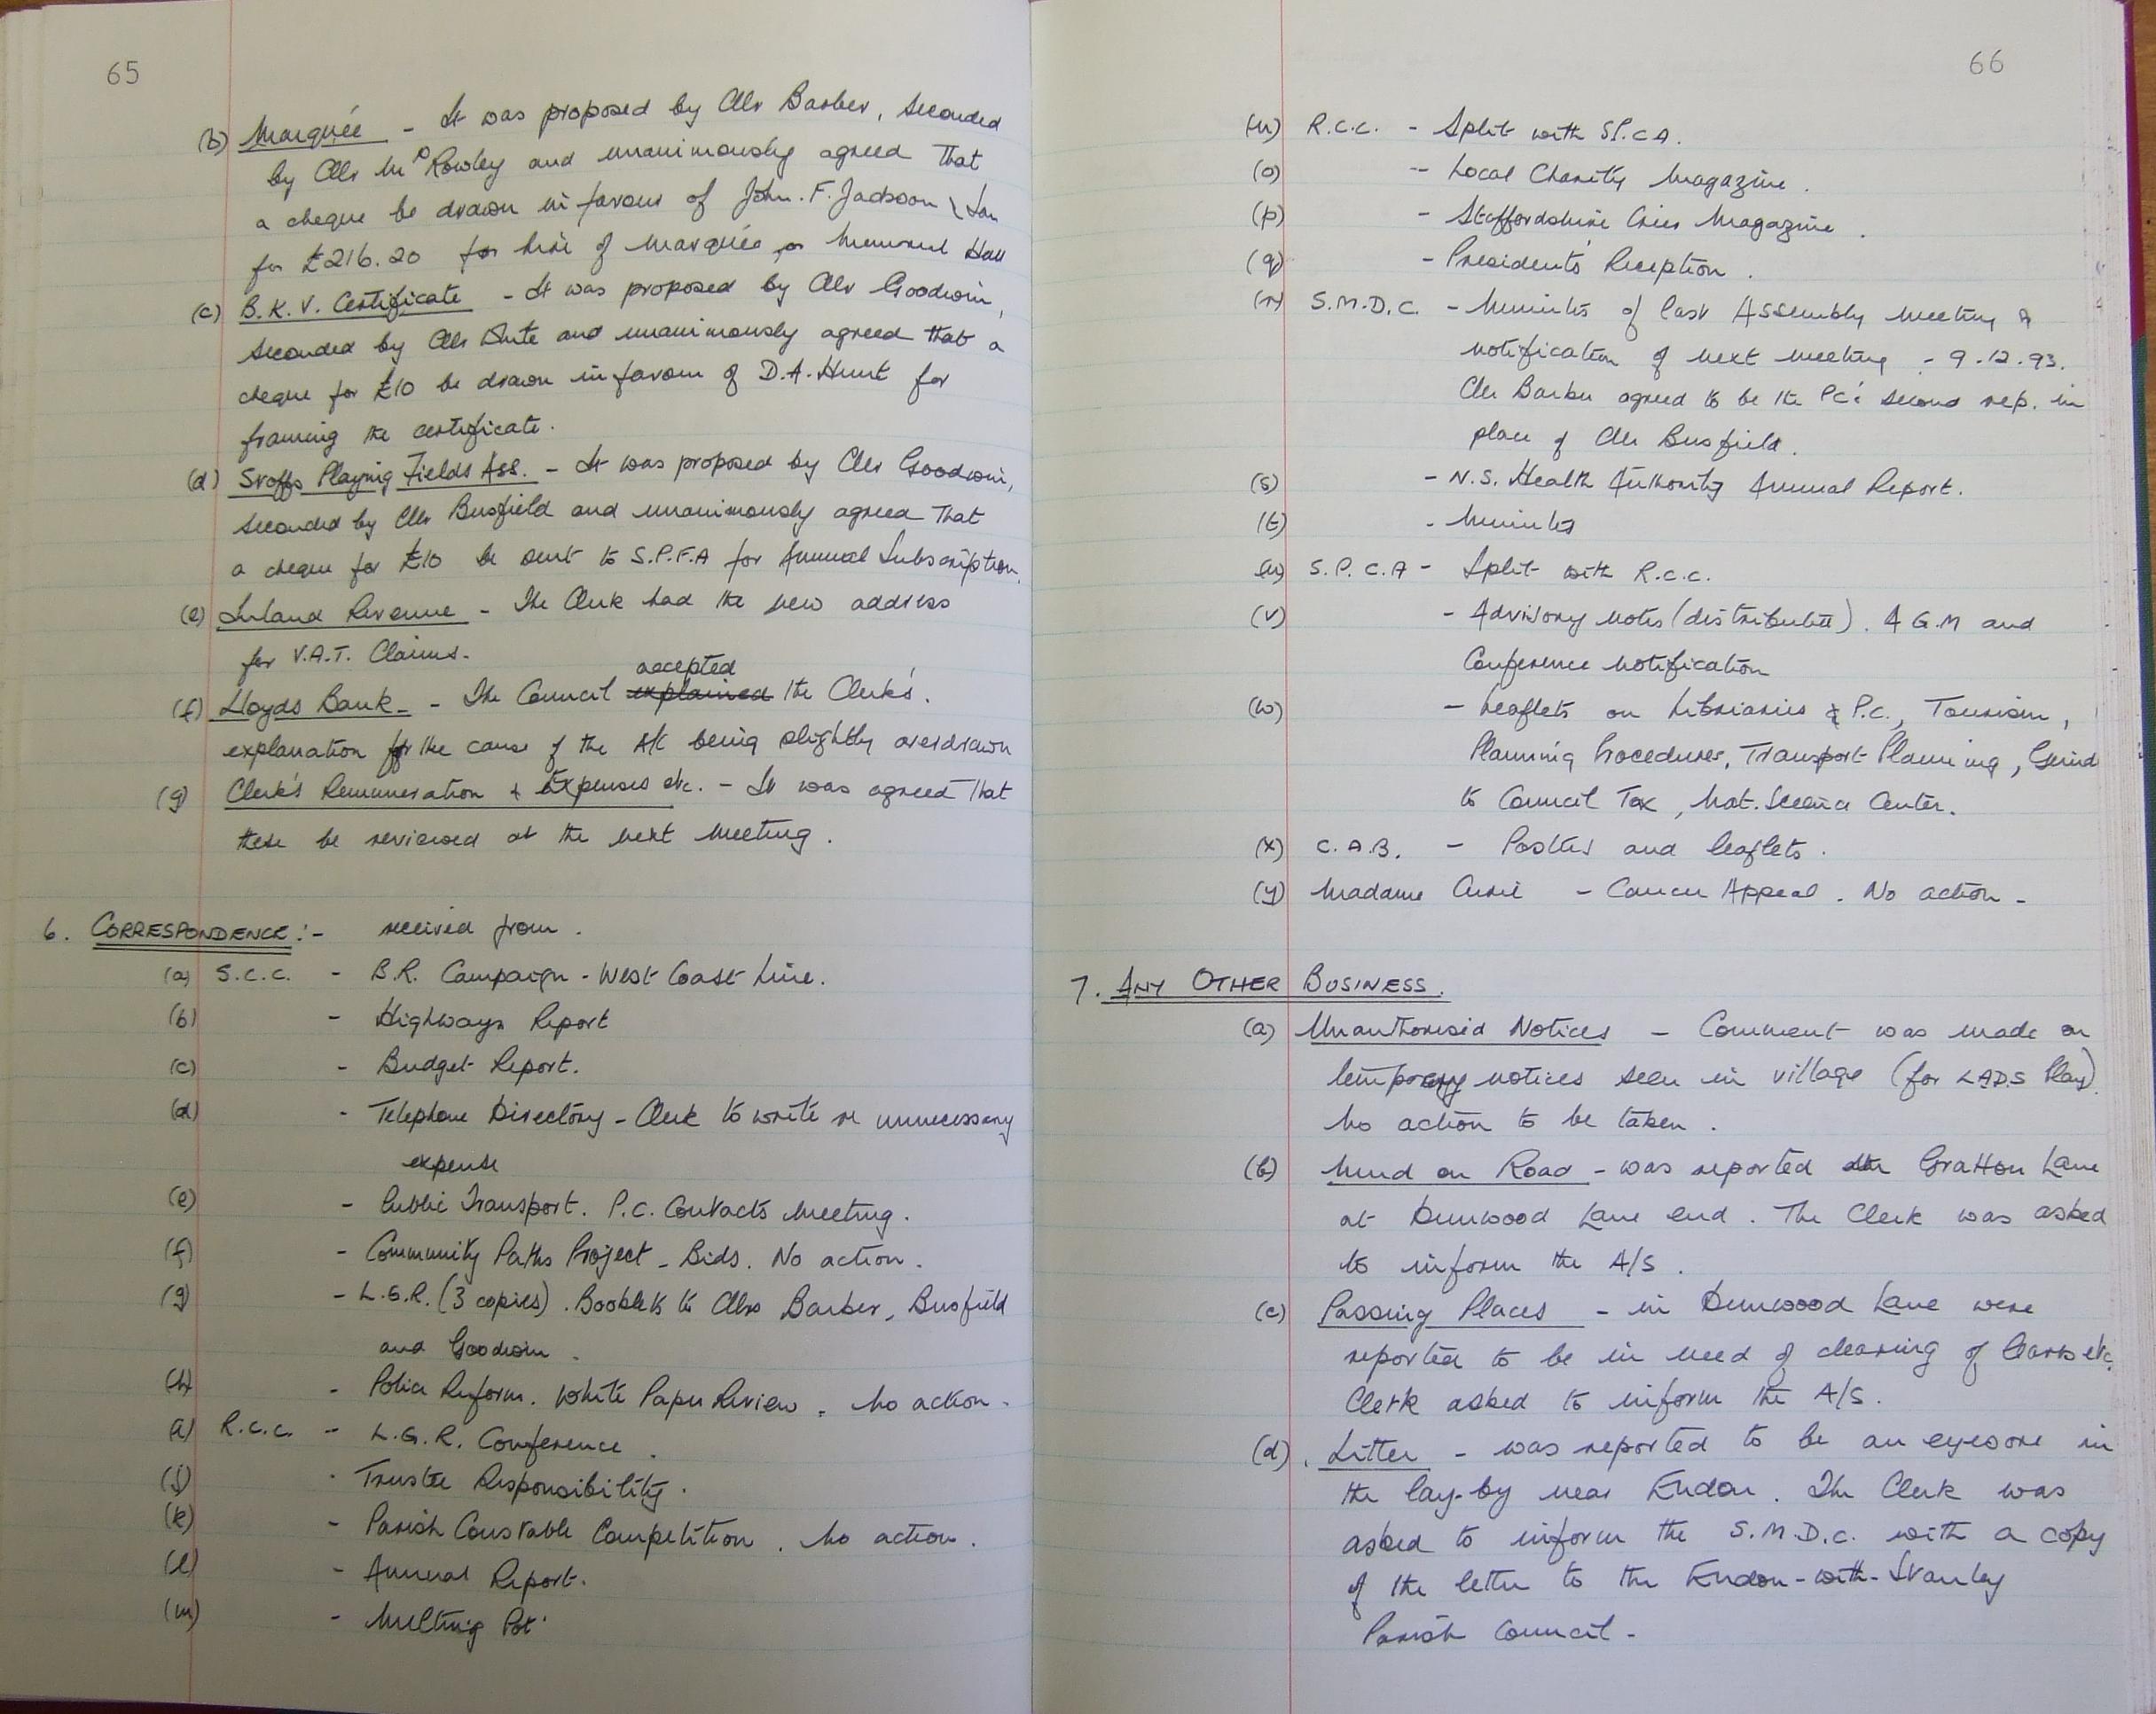 65
(b) Marquée - It was proposed by Cllr Barber, seconded
by Cllr Mrs Rowley and unanimously agreed that
a cheque be drawn in favour of John. F. Jackson & Son
for £216.20 for hire of Marquée or Memorial Hall
(c) B.K.V. Certificate - It was proposed by Cllr Goodwin,
seconded by Cllr and unanimously agreed that a
cheque for £10 be drawn in favour of D.A. Hunt for
framing the certificate.
(d) Staffs Playing Fields Ass. - It was proposed by Cllr Goodwin,
seconded by Cllr Busfield and unanimously agreed that
a cheque for £10 be sent to S.P.F.A for Annual Subscription.
(e) Inland Revenue - The Clerk had the new address
for V.A.T. Claims.
accepted
(f) Lloyds Bank - The Council explained the Clerk's
explanation for the cause of the A/C being slightly overdrawn
(g) Clerk's Remuneration & Expenses etc. - It was agreed that
these be reviewed at the next meeting.
6. CORRESPONDENCE:- received from.
(a) S.C.C. - B.R. Campaign - West Coast Line.
(b) - Highways Report
(c) - Budget Report.
(d) - Telephone Directory - Clerk to write re unnecessary
expense
(e) - Public Transport. P.C. Contacts Meeting.
(f) - Community Paths Project - Bids. No action.
(g) - L.G.R. (3 copies). Booklets to Cllrs Barber, Busfield
and Goodwin.
(h) - Police Reform. White Paper Review. No action.
(i) R.C.C. - L.G.R. Conference.
(j) - Trustee Responsibility.
(k) - Parish Constable Competition. No action.
(l) - Annual Report.
(m) - Melting Pot
66
(n) R.C.C. - Split with SPCA.
(o) - Local Charity Magazine.
(p) - Staffordshire Cries Magazine.
(q) - Presidents' Reception.
(r) S.M.D.C. - Minutes of last Assembly Meeting &
notification of next meeting - 9.12.93.
Cllr Barber agreed to be the PC's second rep. in
place of Cllr Busfield.
(s) - N.S. Health Authority Annual Report.
(t) - Minutes
(u) S.P.C.A - Split with R.C.C.
(v) - Advisory notes (distributed). A G.M and
Conference notification
(w) - Leaflets on Libriaries & P.C., Tourism,
Planning Procedures, Transport Planning, Guide
to Council Tax, Nat. Center.
(x) C.A.B. - Posters and leaflets.
(y) Madame Curie - Cancer Appeal. No action -
7. ANY OTHER BUSINESS.
(a) Unauthorised Notices - Comment was made on
temporary notices seen in village (for LADS Play)
No action to be taken.
(b) Mud on Road - was reported Gratton Lane
at Dunwood Lane end. The Clerk was asked
to inform the A/S.
(c) Passing Places - in Dunwood Lane were
reported to be in need of clearing of etc.
Clerk asked to inform the A/S.
(d). Litter - was reported to be an eyesore in
the lay-by near Endon. The Clerk was
asked to inform the S.M.D.C. with a copy
of the letter to the Endon-with-Stanley
Parish Council -